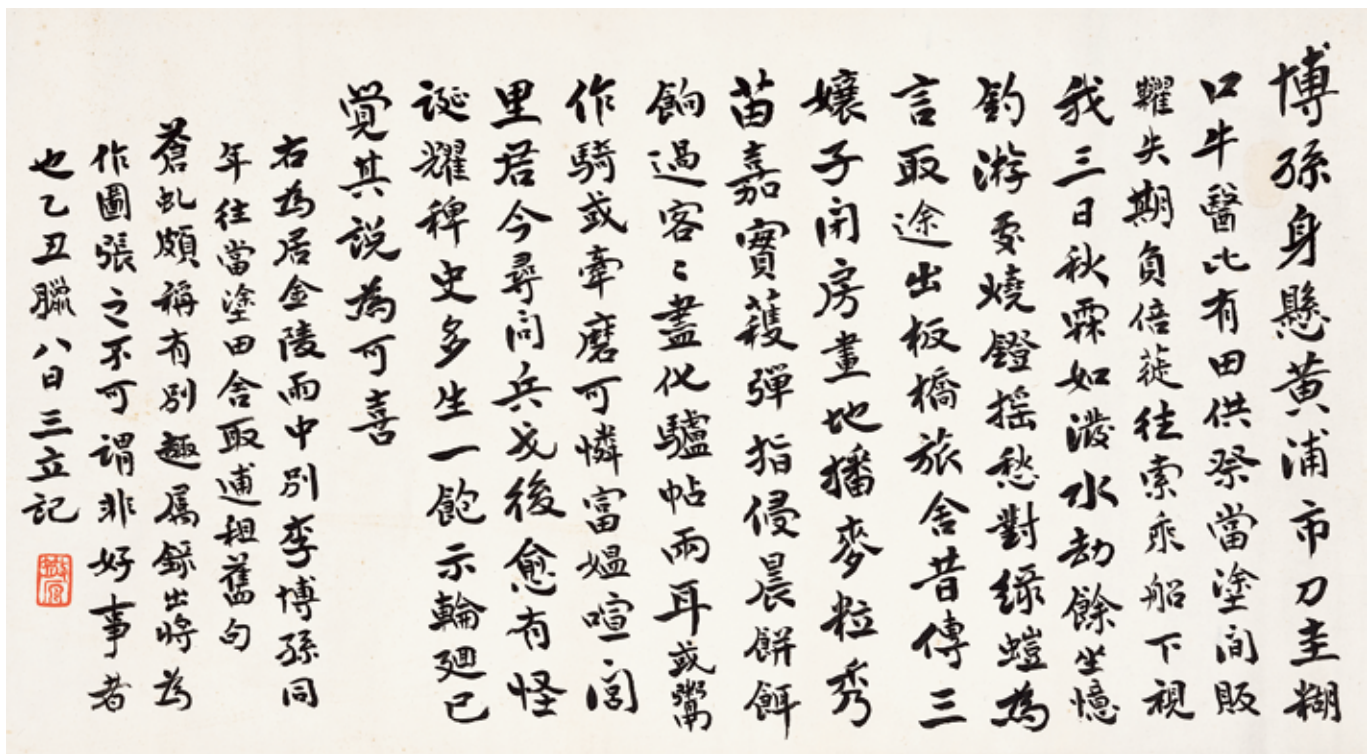 博孫身懸黃浦市刀圭糊
口牛醫比有田供祭當塗間販
糶失期負倍蓰往索乘船下視
我三日秋霖如潑水劫餘坐憶
釣游處燒鐙搖愁對綠螘為
言取途出板橋旅舍昔傳三
孃子閉房畫地播麥粒秀
苗嘉實穫彈指侵晨餅餌
餉過客〻盡化驢帖兩耳或鬻
作騎或牽磨可憐富媼喧閭
里君今尋問兵戈後愈有怪
誕耀稗史多生一飽示輪迴已
覺其説為可喜
右為居金陵雨中別李博孫同
年往當塗田舍取逋租舊句
蒼虬頗稱有別趣屬錄出將為
作圖張之不可謂非好事者
也乙丑臘八日三立記
散原